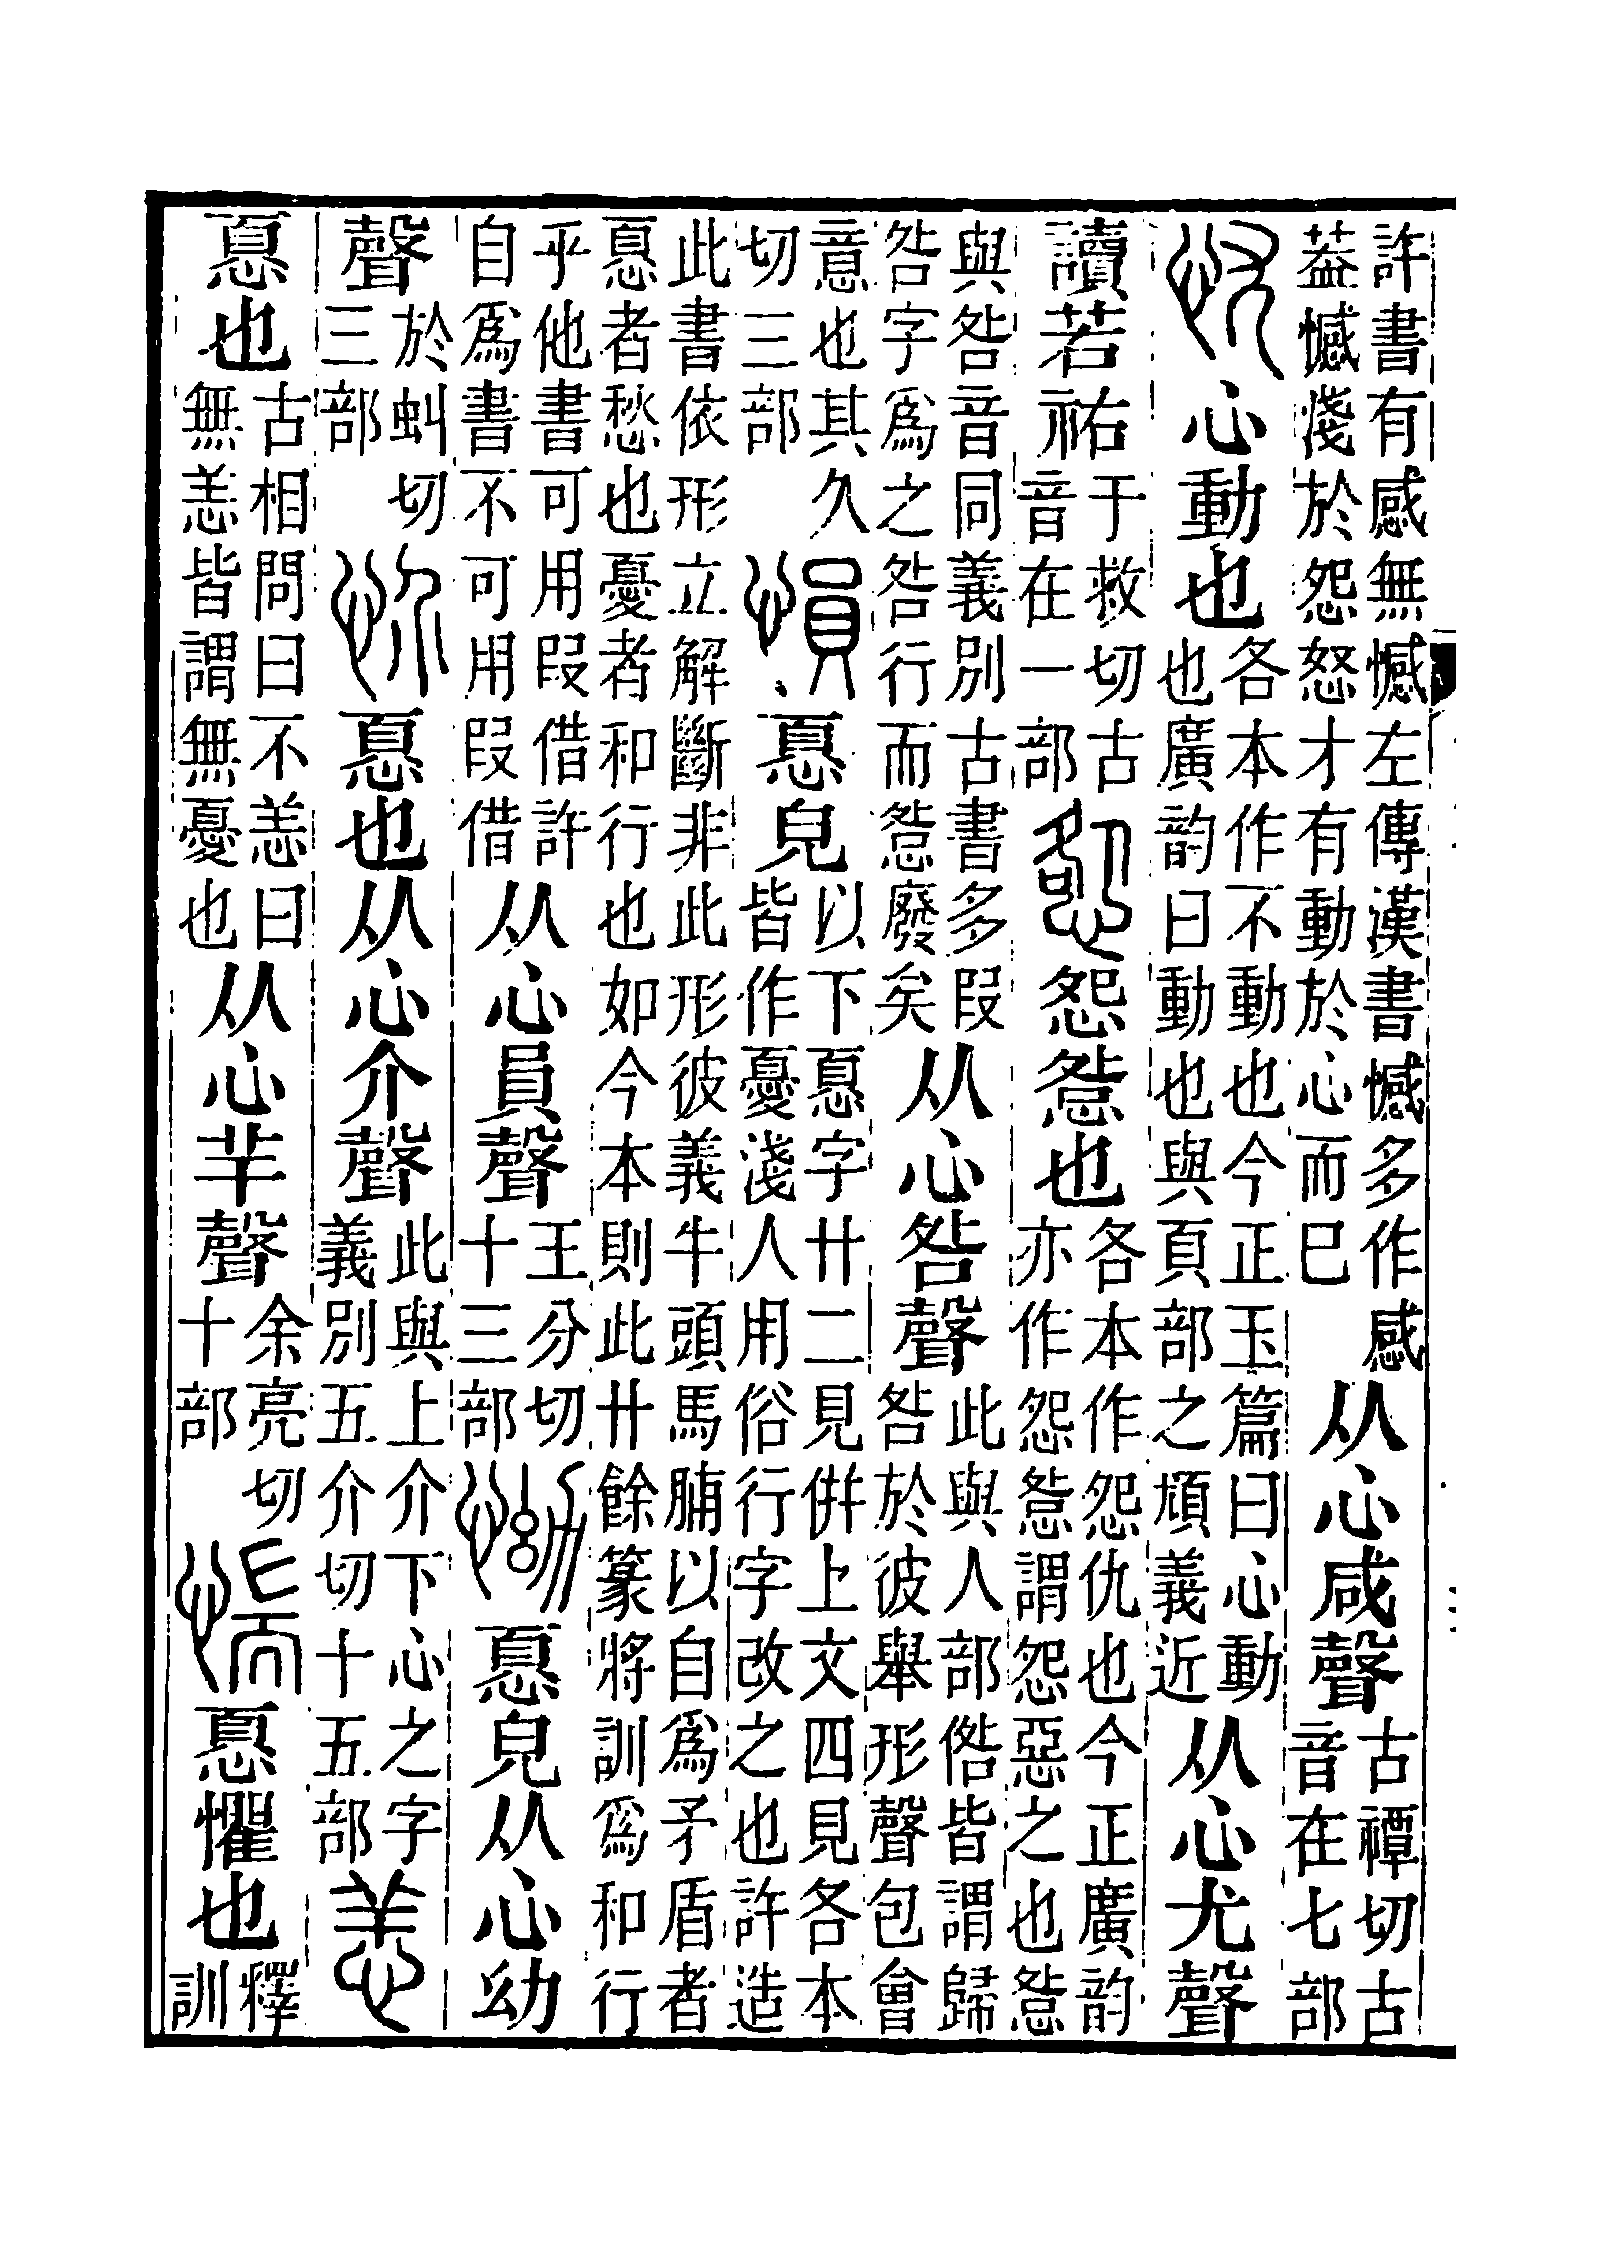 許書有感無憾左傳漢書憾多作感
葢憾淺於怨怒才有動於心而巳
从心咸聲
古禫切古
音在七部
忧心動也
各本作不動也今正玉篇曰心動
也廣韵曰動也與頁部之頄義近
从心尤聲
讀若祐
于救切古
音在一部
慦怨慦也
各本作怨仇也今正廣韵
亦作怨慦謂怨惡之也慦
與咎音同義別古書多叚
咎字爲之咎行而慦廢矣
从心咎聲
此與人部倃皆謂歸
咎於彼舉形聲包會
意也其久
切三部
愪𢝊皃
以下𢝊字廿二見倂上文四見各本
皆作憂淺人用俗行字改之也許造
此書依形立解斷非此形彼義牛頭馬脯以自爲矛盾者
𢝊者愁也憂者和行也如今本則此廿餘篆將訓爲和行
乎他書可用叚借許
自爲書不可用叚借
从心員聲
王分切
十三部
怮𢝊皃从心幼
聲
於虯切
三部
忦𢝊也从心介聲
此與上介下心之字
義別五介切十五部
恙
𢝊也
古相問曰不恙曰
無恙皆謂無憂也
从心羊聲
余亮切
十部
惴𢝊懼也
釋
訓